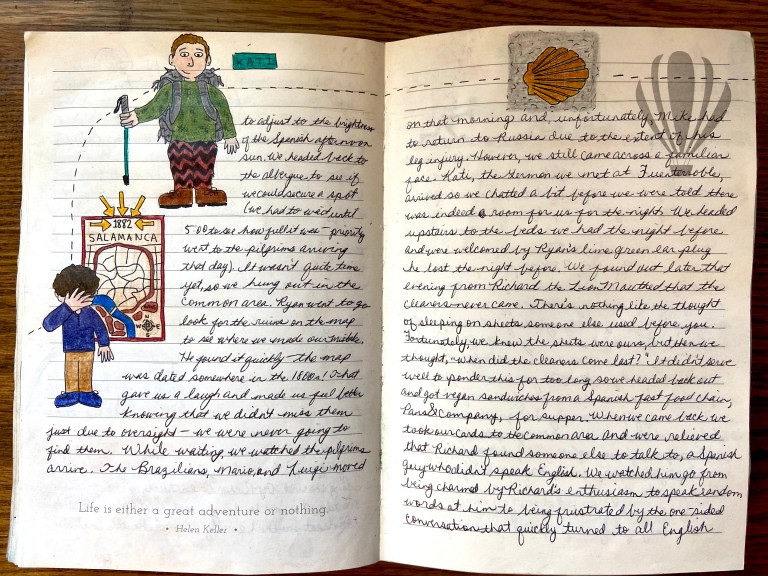 KATI
to adjust to the brightness
of the Spanish afternoon
sun. We headed back to
the albergue to see if
we could secure a spot
(we had to wait until
1882
SALAMANCA
N
W E
S
5:00 to see how full it was - priority
went to the pilgrims arriving
that day). It wasn't quite time
yet, so we hung out in the
common area. Ryan went to go
look for the ruins on the map
to see where we made our mistake.
He found it quickly - the map
was dated somewhere in the 1800s! That
gave us a laugh and made us feel better
knowing that we didn't miss them
just due to oversight - we were never going to
find them. While waiting, we watched the pilgrims
arrive. The Brazilians, Mario, and Luigi moved
Life is either a great adventure or nothing.
• Helen Keller •
on that morning and, unfortunately, Mike had
to return to Russia due to the extent of his
leg injury. However, we still came across a familiar
face. Kati, the German we met at Fuenterroble,
arrived so we chatted a bit before we were told there
was indeed a room for us for the night. We headed
upstairs to the beds we had the night before
and were welcomed by Ryan's lime green ear plug
he lost the night before. We found out later that
evening from Richard the Lion Mouthed that the
cleaners never came. There's nothing like the thought
of sleeping on sheets someone else used before you.
Fortunately, we knew the sheets were ours, but then we
thought, "when did the cleaners come last?" It didn't serve
well to ponder this for too long so we headed back out
and got vegan sandwiches from a Spanish fast food chain,
Pans & Company, for supper. When we came back we
took our cards to the common area and were relieved
that Richard found someone else to talk to, a Spanish
guy who didn't speak English. We watched him go from
being charmed by Richard's enthusiasm to speak random
words at him to being frustrated by the one-sided
conversation that quickly turned to all English